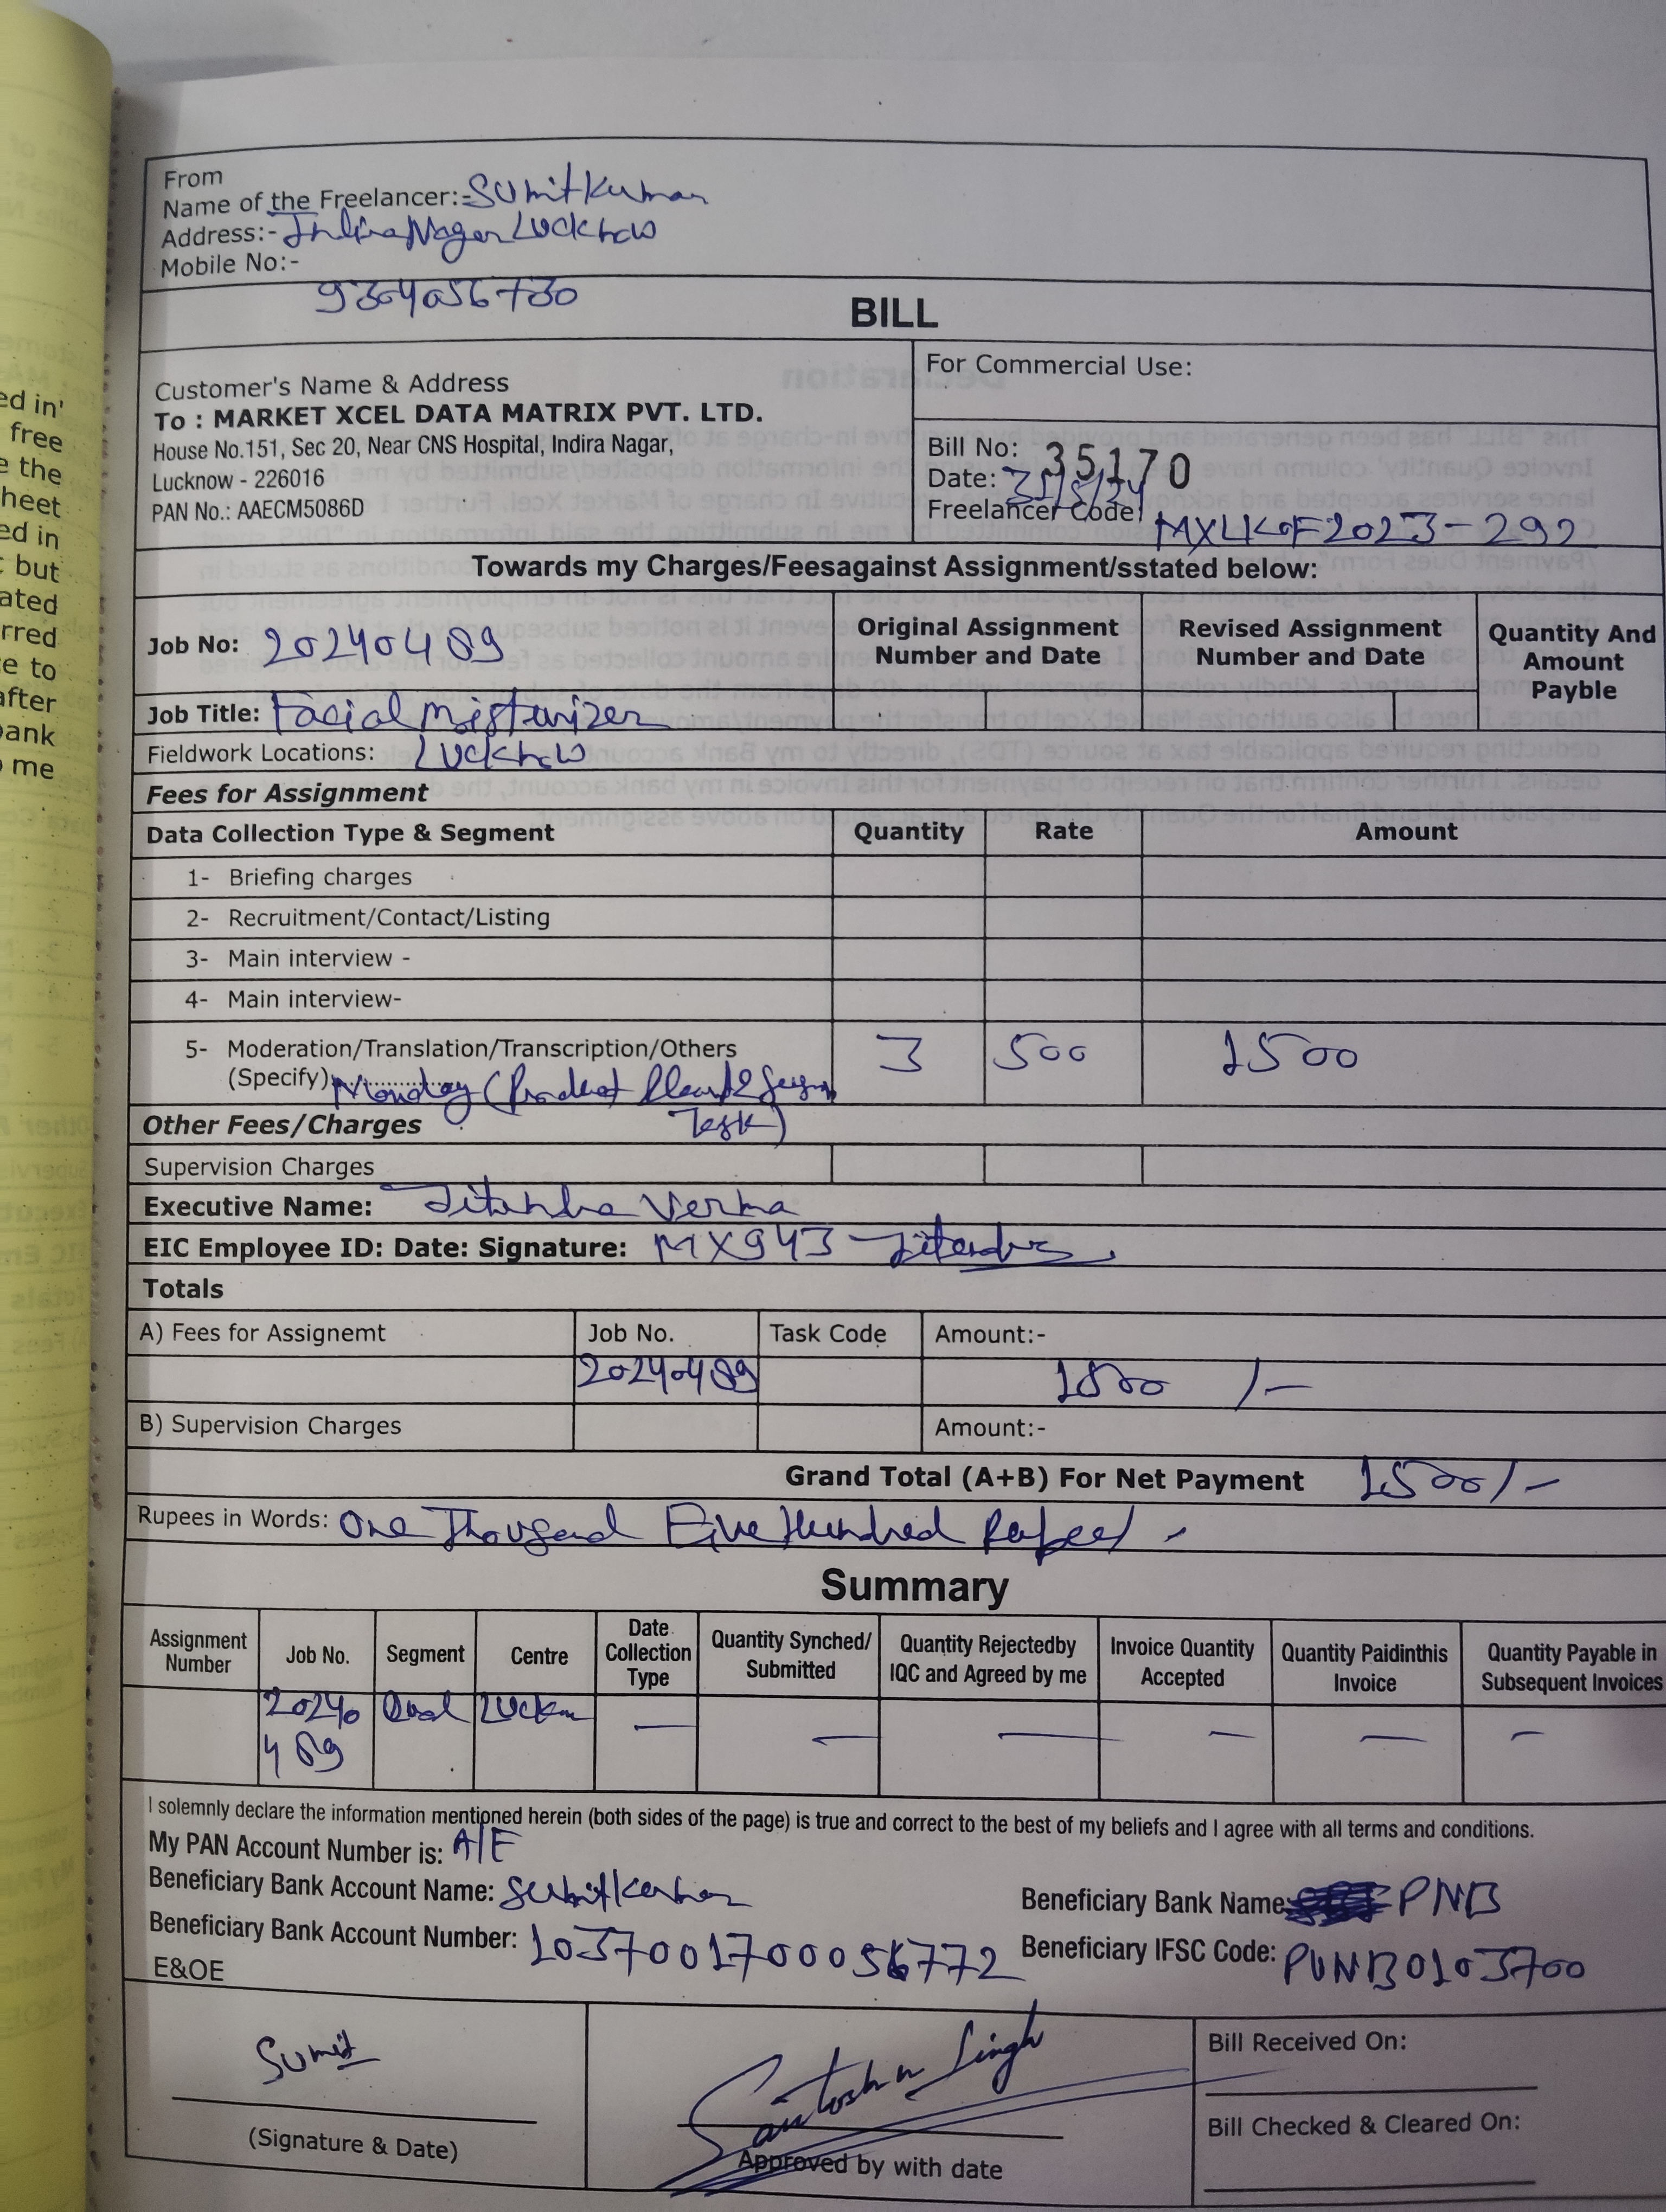 From
Name of the Freelancer:- Sumit Kumar
Address:- Indira Nagar Lucknow
Mobile No:-
BILL
Customer's Name & Address
To : MARKET XCEL DATA MATRIX PVT. LTD.
House No.151, Sec 20, Near CNS Hospital, Indira Nagar,
Lucknow - 226016
PAN No.: AAECM5086D
For Commercial Use:
Bill No: 35170
Date:
Freelancer Code: MXLKOF2023-292
Towards my Charges/Feesagainst Assignment/sstated below:
Job No: 20240489
Original Assignment Number and Date
Revised Assignment Number and Date
Quantity And Amount Payble
Job Title: Facial Moisturizer
Fieldwork Locations: Lucknow
Fees for Assignment
Data Collection Type & Segment Quantity Rate Amount
1- Briefing charges
2- Recruitment/Contact/Listing
3- Main interview -
4- Main interview-
5- Moderation/Translation/Transcription/Others 3 500 1500
(Specify) (Product
Other Fees/Charges
Supervision Charges
Executive Name: Jitendra Verma
EIC Employee ID: Date: Signature: MX943 Jitendra
Totals
A) Fees for Assignemt Job No. Task Code Amount:-
20240489 1500 /-
B) Supervision Charges Amount:-
Grand Total (A+B) For Net Payment 1500/-
Rupees in Words: One Thousand Five Hundred Rupees
Summary
Assignment Number Job No. Segment Centre Date Collection Type Quantity Synched/ Submitted Quantity Rejectedby IQC and Agreed by me Invoice Quantity Accepted Quantity Paidinthis Invoice Quantity Payable in Subsequent Invoices
20240 Qual
489
I solemnly declare the information mentioned herein (both sides of the page) is true and correct to the best of my beliefs and I agree with all terms and conditions.
My PAN Account Number is: A/F
Beneficiary Bank Account Name: Sumit Kumar
Beneficiary Bank Name: PNB
Beneficiary Bank Account Number: 1037001700056772
Beneficiary IFSC Code: PUNB0103700
E&OE
Sumit
(Signature & Date)
Santosh Singh
Approved by with date
Bill Received On:
Bill Checked & Cleared On: